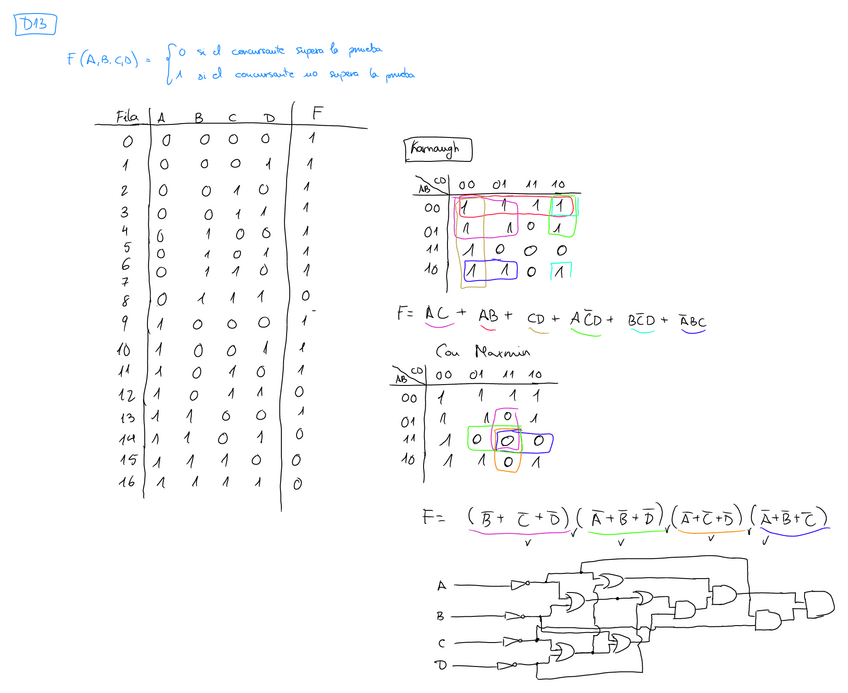 D13
F(A,B,C,D) = { 0 si el concursante supera la prueba
1 si el concursante no supera la prueba
Fila A B C D F
0 0 0 0 0 1
1 0 0 0 1 1
2 0 0 1 0 1
3 0 0 1 1 1
4 0 1 0 0 1
5 0 1 0 1 1
6 0 1 1 0 1
7
8 0 1 1 1 0
9 1 0 0 0 1
10 1 0 0 1 1
11 1 0 1 0 1
12 1 0 1 1 0
13 1 1 0 0 1
14 1 1 0 1 0
15 1 1 1 0 0
16 1 1 1 1 0
Karnaugh
AB CD 00 01 11 10
00 1 1 1 1
01 1 1 0 1
11 1 0 0 0
10 1 1 0 1
F= AC + AB + CD + AC̄D + BC̄D + ĀBC
Con Maxmin
AB CD 00 01 11 10
00 1 1 1 1
01 1 1 0 1
11 1 0 0 0
10 1 1 0 1
F= (B̄ + C̄ + D̄)(Ā+B̄+D̄)(Ā+C̄+D̄)(Ā+B̄+C̄)
A
B
C
D